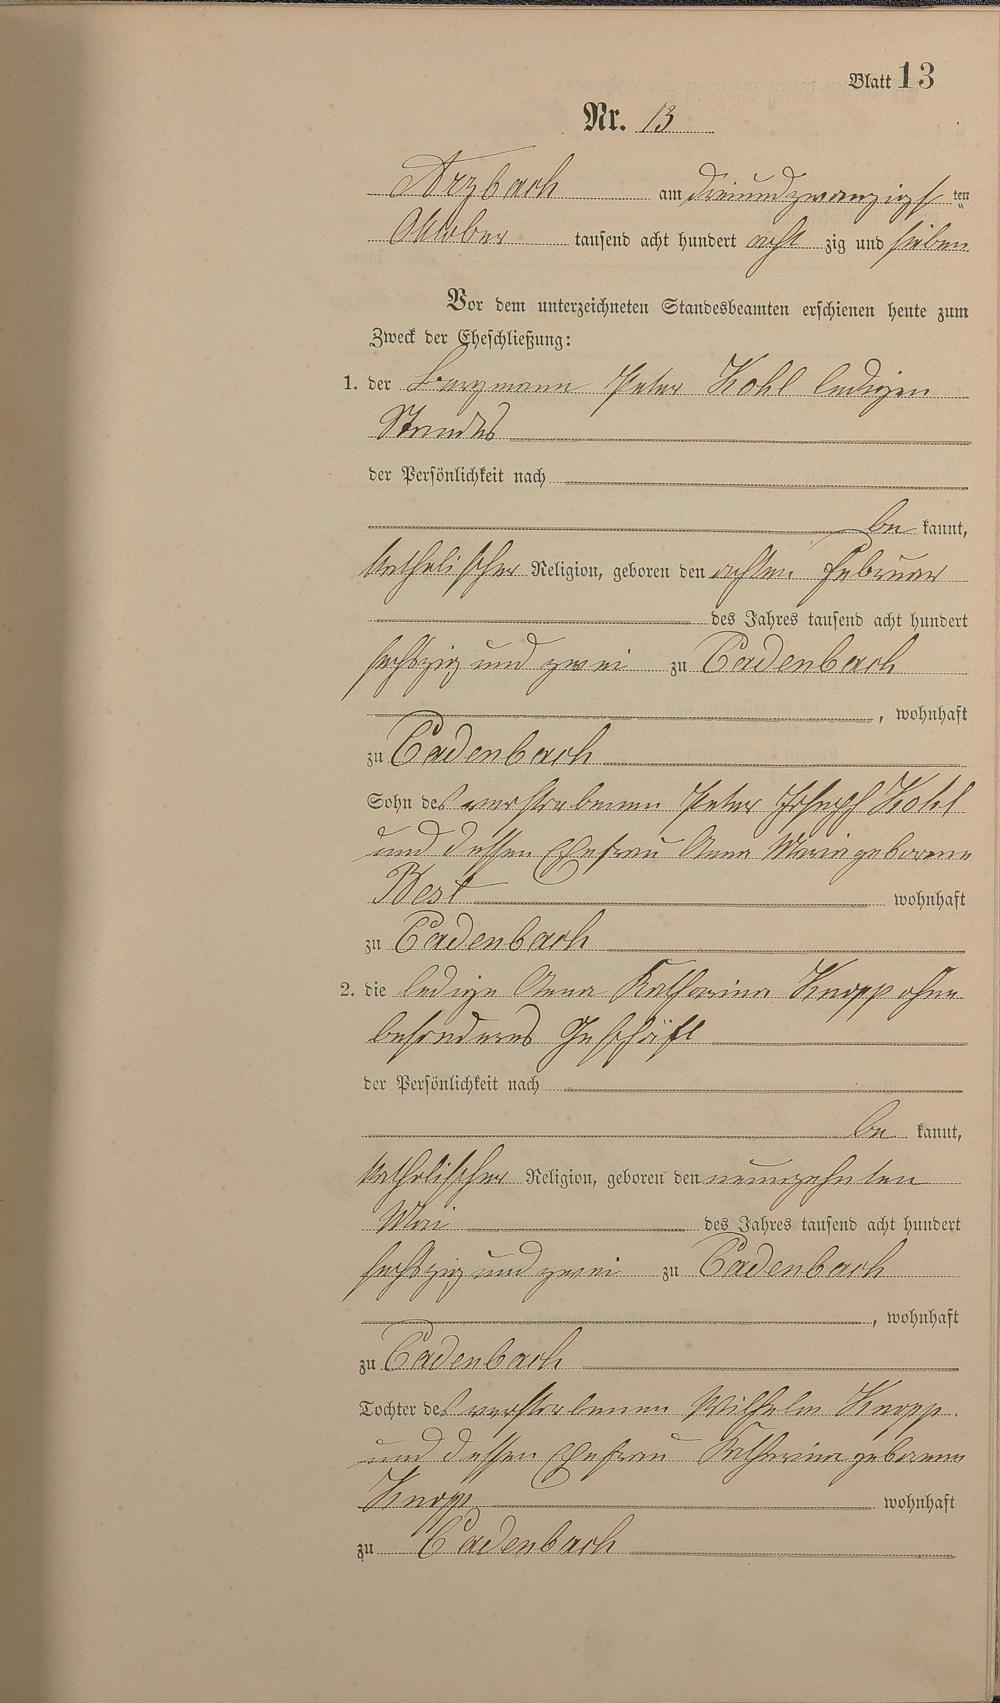 Blatt 13
Nr. 13
Arzbach am dreiundzwanzigsten
Oktober tausend acht hundert achtzig und sieben
Vor dem unterzeichneten Standesbeamten erschienen heute zum
Zweck der Eheschließung:
1. der Bergmann Peter Kohl ledigen
Standes
der Persönlichkeit nach
bekannt,
katholischer Religion, geboren den achten Februar
des Jahres tausend acht hundert
sechszig und zwei zu Cadenbach
, wohnhaft
zu Cadenbach
Sohn des verstorbenen Peter Joseph Kohl
und dessen Ehefrau Anna Maria geborene
Best wohnhaft
zu Cadenbach
2. die ledige Anna Katharina Knopp ohne
besonderes Geschäft
der Persönlichkeit nach
bekannt,
katholischer Religion, geboren den neunzehnten
Mai des Jahres tausend acht hundert
sechszig und zwei zu Cadenbach
, wohnhaft
zu Cadenbach
Tochter des verstorbenen Wilhelm Knopp
und dessen Ehefrau Katharina geborene
Knopp wohnhaft
zu Cadenbach